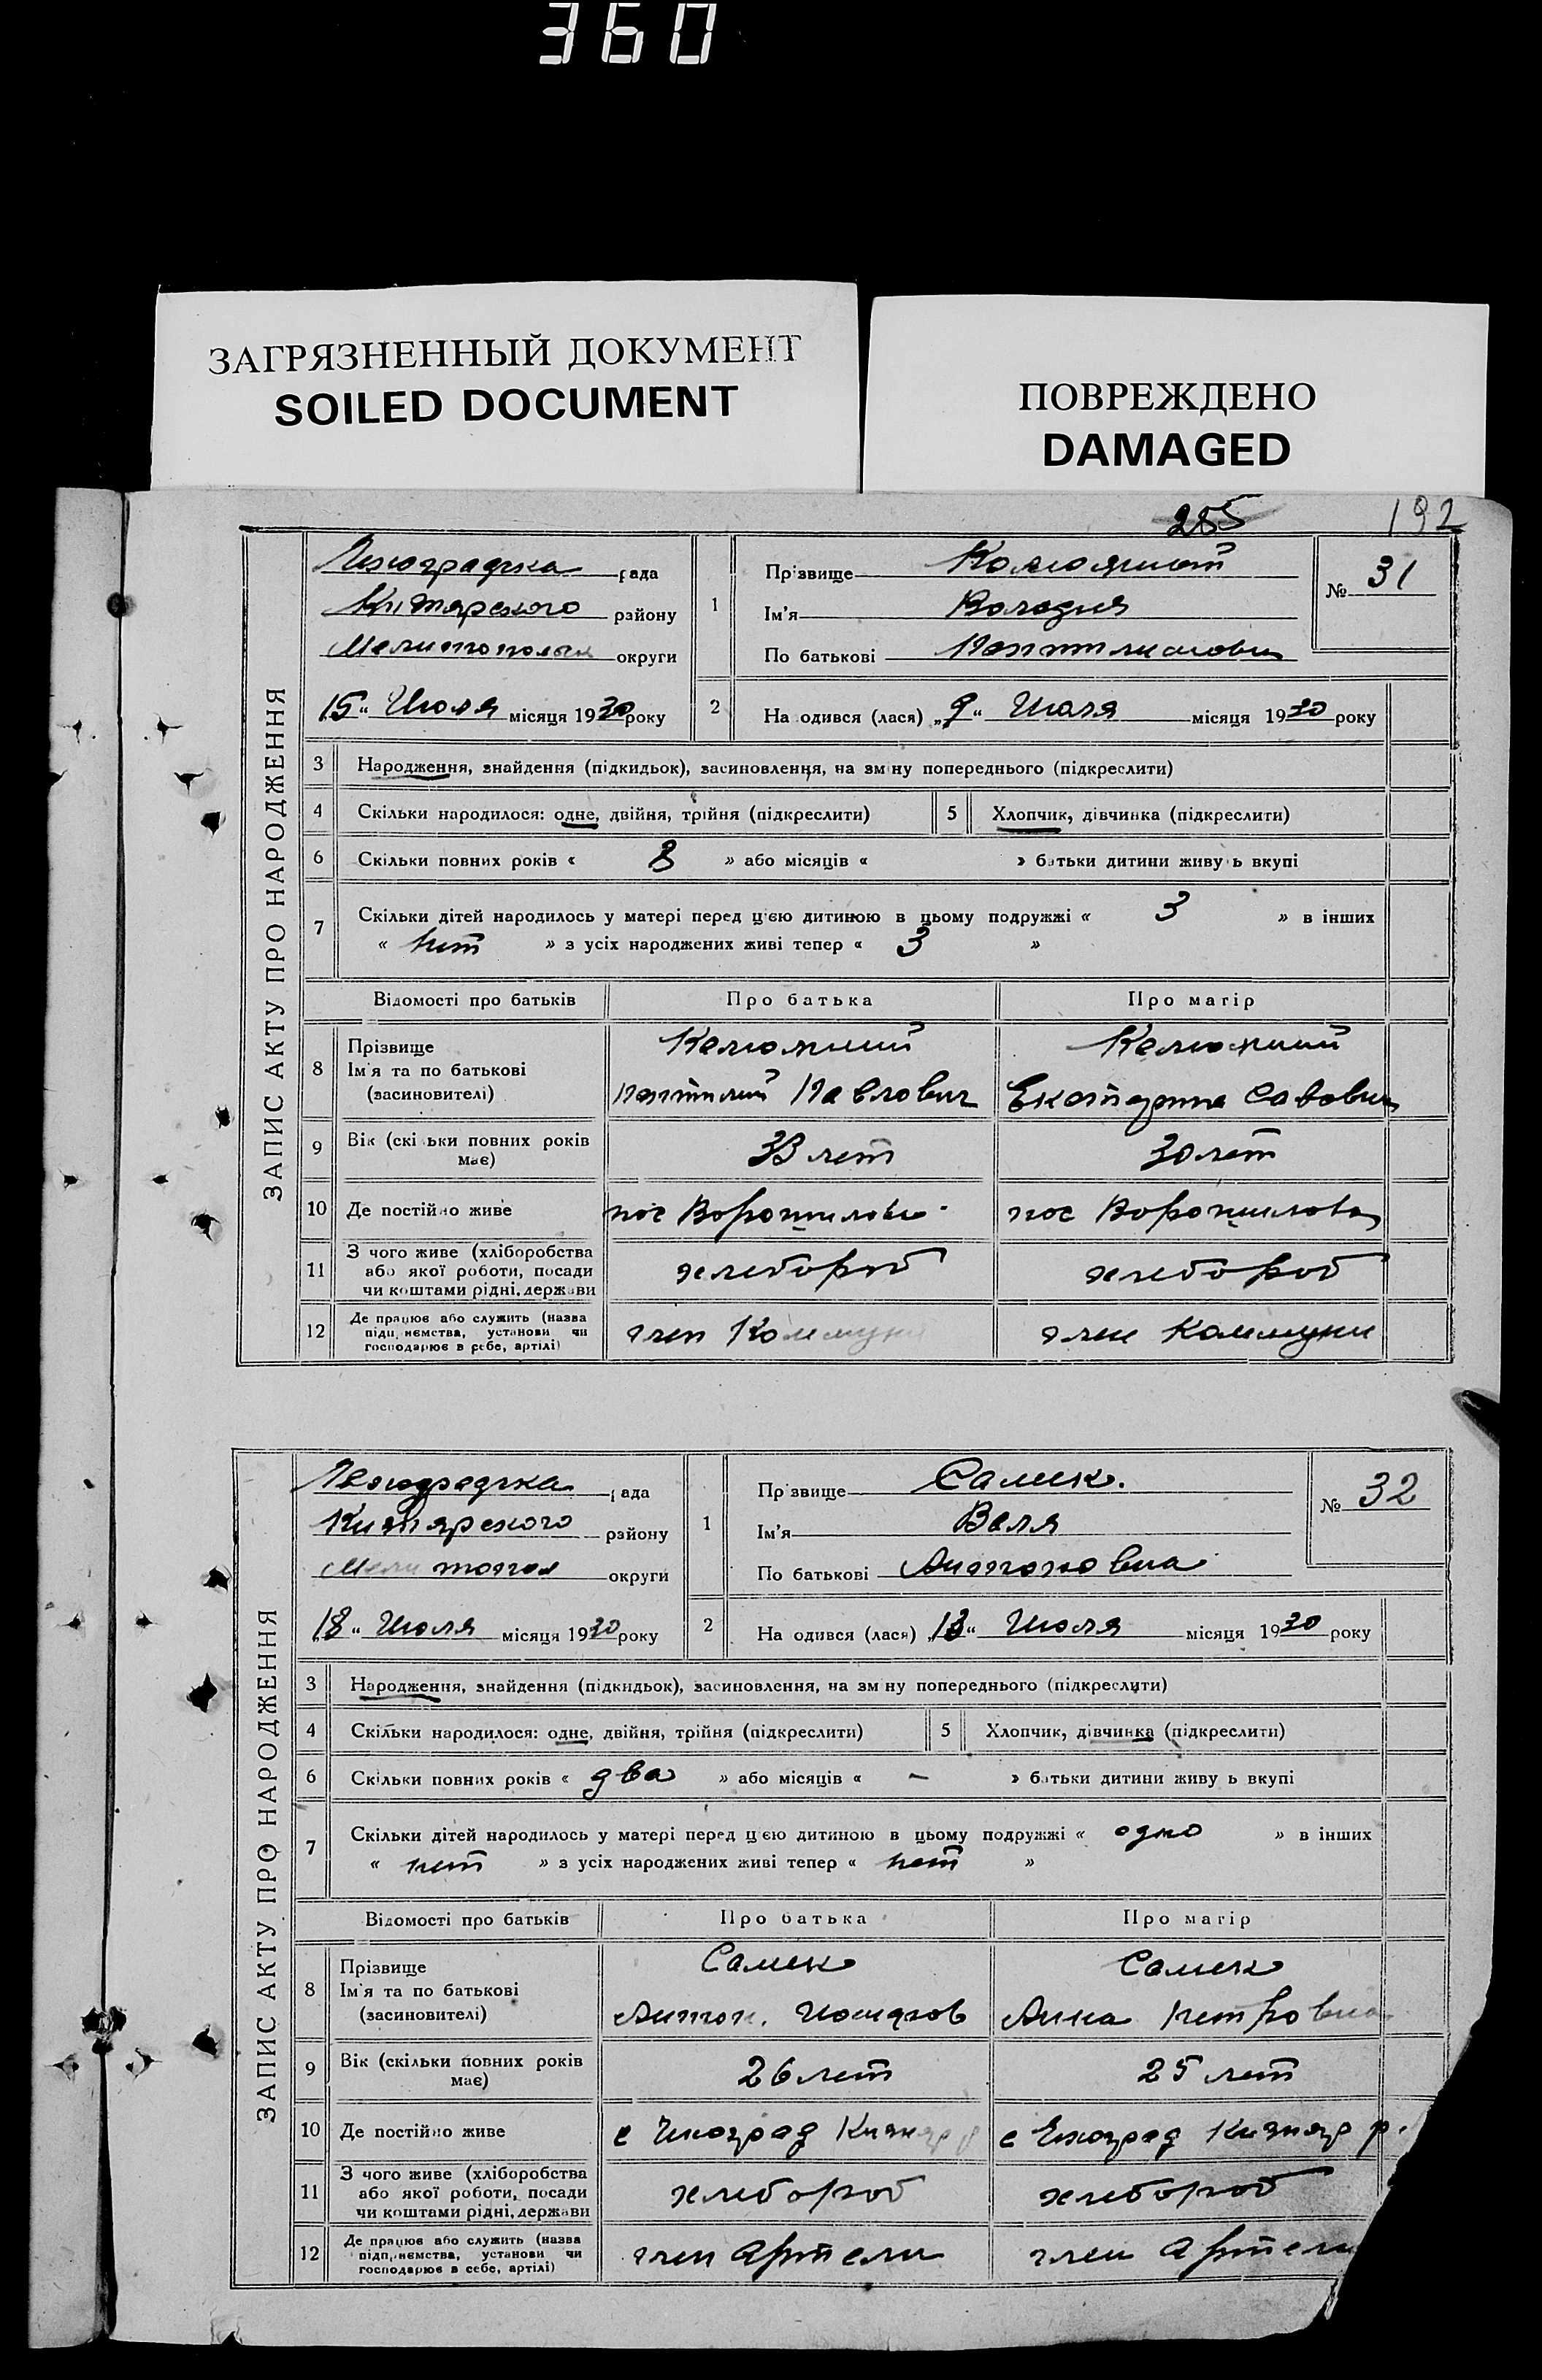 360
ЗАГРЯЗНЕННЫЙ ДОКУМЕНТ
SOILED DOCUMENT
ПОВРЕЖДЕНО
DAMAGED
285
192
ЗАПИС АКТУ ПРО НАРОДЖЕННЯ
рада
району
округи
15 " Июля місяця 1930 року
1
Прізвище
Ім'я Володия
По батькові
№ 31
2
На одився (лася) „ 9 " Июля місяця 1930 року
3 Народження, знайдення (підкидьок), засиновлення, на зм ну попереднього (підкреслити)
4 Скільки народилося: одне, двійня, трійня (підкреслити) 5 Хлопчик, дівчинка (підкреслити)
6 Скільки повних років « 8 » або місяців « » батьки дитини живу ь вкупі
7 Скільки дітей народилось у матері перед цією дитиною в цьому подружжі « 3 » в інших
« нет » з усіх народжених живі тепер « 3 »
Відомості про батьків Про батька Про матір
8 Прізвище
Ім'я та по батькові
(засиновителі)
Павлович
Екатерина
9 Вік (скі ьки повних років має) 33 лет 30 лет
10 Де постійно живе пос Ворошилово пос Ворошилова
11 З чого живе (хліборобства
або якої роботи, посади
чи коштами рідні, держави
хлебороб хлебороб
12 Де працює або служить (назва
підп, иємства, установи чи
господарює в себе, артілі)
член Коммуни член Коммуни
ЗАПИС АКТУ ПРО НАРОДЖЕННЯ
рада
району
округи
18 " Июля місяця 1930 року
1
Пр звище Самек.
Ім'я Валя
По батькові Антоновна
№ 32
2
На одився (лася) „ 13 " Июля місяця 1930 року
3 Народження, знайдення (підкидьок), засиновлення, на зм ну попереднього (підкреслити)
4 Скільки народилося: одне, двійня, трійня (підкреслити) 5 Хлопчик, дівчинка (підкреслити)
6 Скільки повних років « два » або місяців « – » батьки дитини живу ь вкупі
7 Скільки дітей народилось у матері перед ц єю дитиною в цьому подружжі « одно » в інших
« нет » з усіх народжених живі тепер « нет »
Відомості про батьків Про батька Про матір
8 Прізвище
Ім'я та по батькові
(засиновителі)
Самек Самек
Антон. Анна Петровна
9 Вік (скільки повних років має) 26 лет 25 лет
10 Де постійно живе
11 З чого живе (хліборобства
або якої роботи, посади
чи коштами рідні, держави
хлебороб хлебороб
12 Де працює або служить (назва
підп, иємства, установи чи
господарює в себе, артілі)
член Артели член Артели